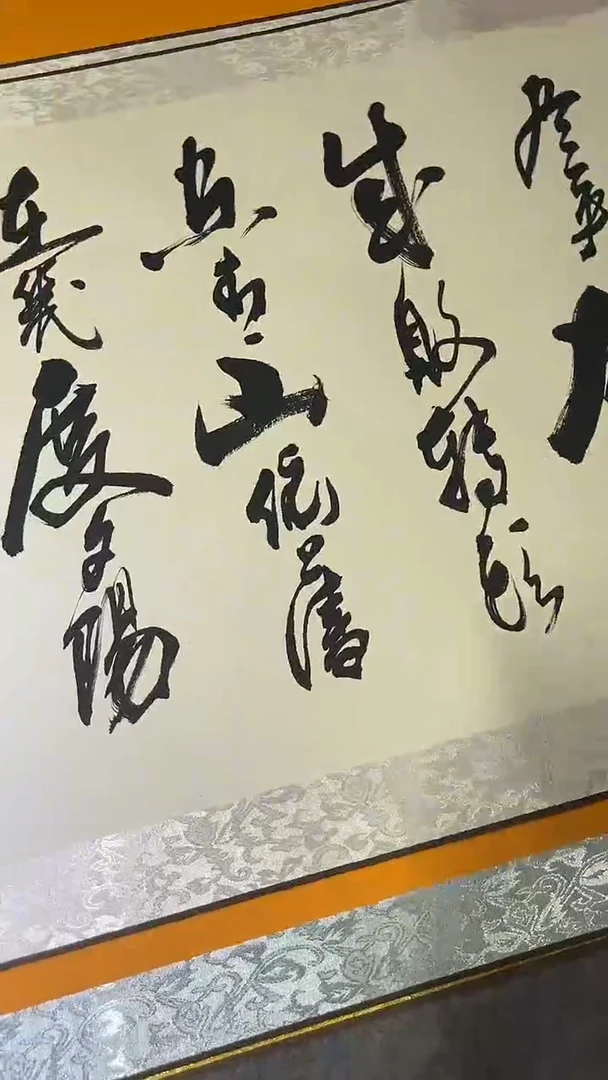 成敗轉頭
空青山依舊
在幾度夕陽